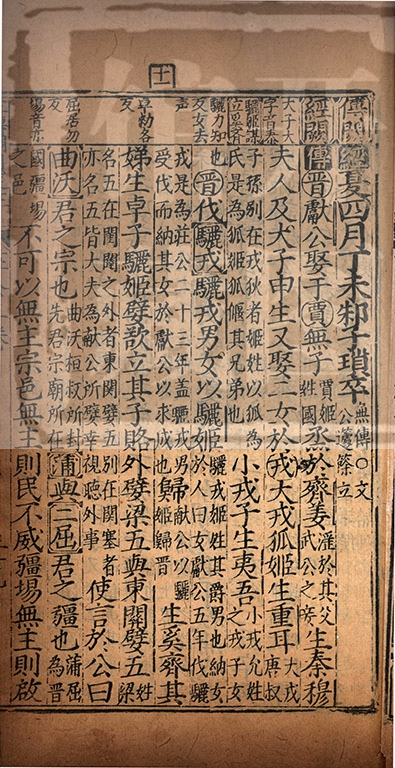 十一
傳閼
經閼
大子大
字音泰
驪力知
反女去
声
卓勑各
反
屈居勿
反
埸音亦
經夏四月丁未邾子瑣卒無傳○文公蘧篨立
傳晉獻公娶于賈無子賈姬姓國烝於齊姜淮於其父武公之妾生秦穆
夫人及大子申生又娶二女於戎大戎狐姬生重耳大戎唐叔
子孫別在戎狄者姬姓以狐為氏是為狐姬狐偃其兄弟也小戎子生夷吾小戎允姓之戎子女
也晉伐驪戎驪戎男女以驪姬驪戎姬姓其爵男也納女於人曰女獻公五年伐驪
戎是為莊公二十三年盖驪戎男獻公以驪受伐而納其女於獻公以求成也歸姬歸晉生奚齊其
娣生卓子驪姬嬖欲立其子賂外嬖梁五與東關嬖五姓梁
名五在閨閫之外者東關嬖五別在關塞者亦名五皆大夫為獻公所嬖幸視聽外事使言於公曰
曲沃君之宗也曲沃桓叔所封先君宗廟所在蒲與二屈君之疆也蒲屈為晉
國疆埸之邑不可以無主宗邑無主則民不威疆埸無主則啟